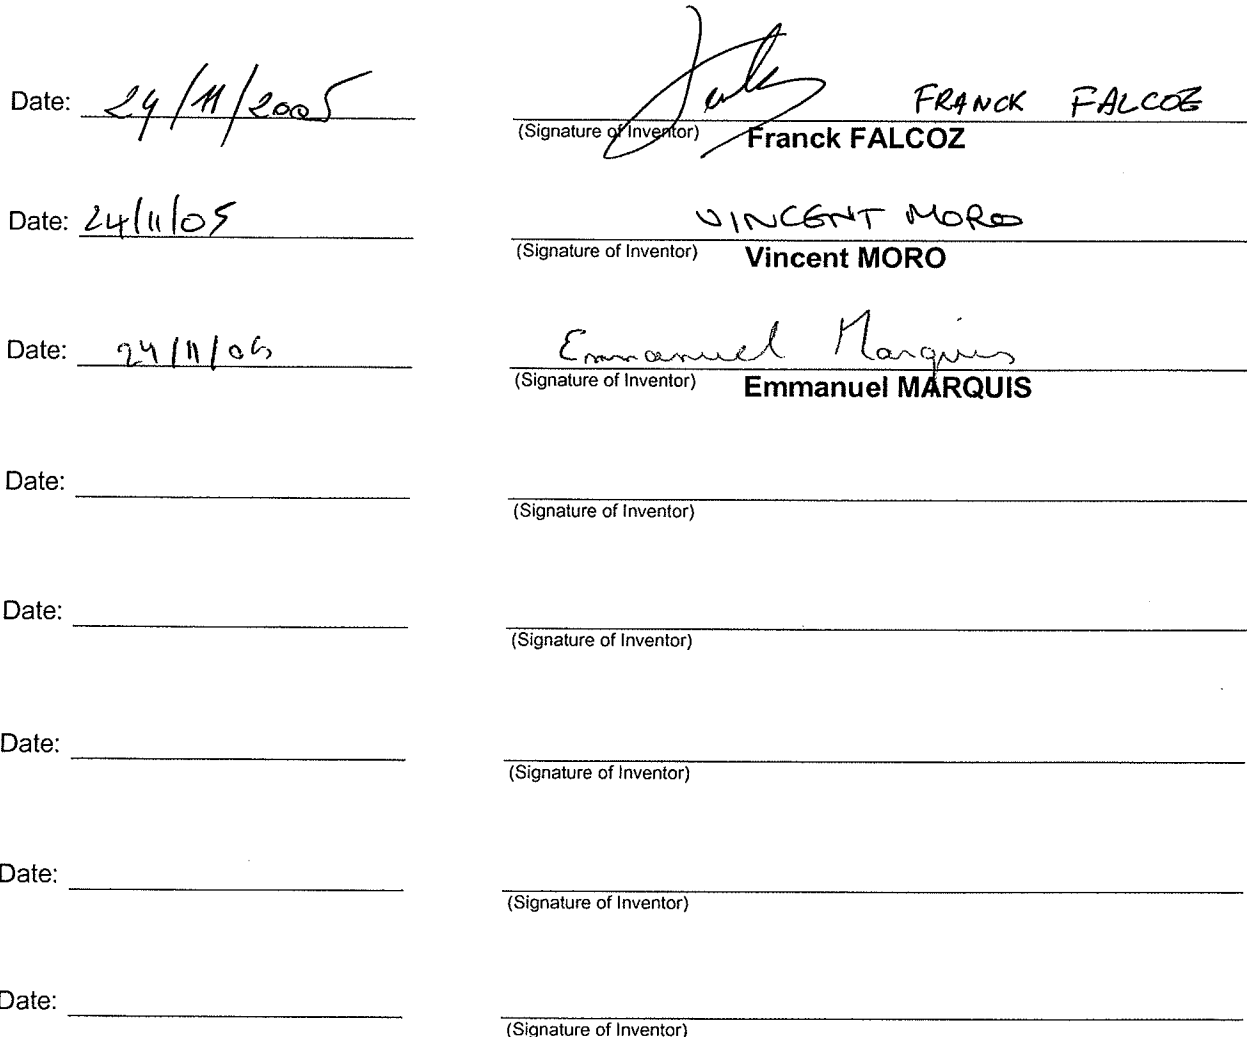 Date: 24/11/2005 FRANCK FALCOZ
(Signature of Inventor) Franck FALCOZ
Date: 24/11/05 VINCENT MORO
(Signature of Inventor) Vincent MORO
Date: 24/11/05 Emmanuel Marquis
(Signature of Inventor) Emmanuel MARQUIS
Date:
(Signature of Inventor)
Date:
(Signature of Inventor)
Date:
(Signature of Inventor)
Date:
(Signature of Inventor)
Date:
(Signature of Inventor)